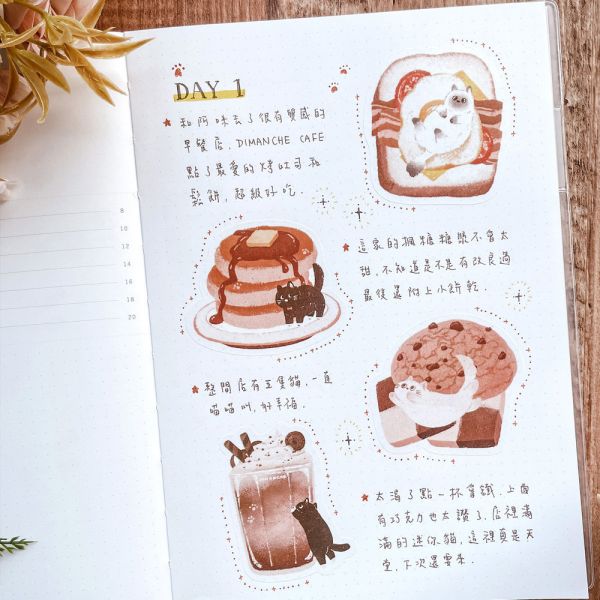 DAY 1
和阿咪去了很有質感的
早餐店, DIMANCHE CAFE
點了最愛的烤吐司和
鬆餅, 超級好吃.
這家的楓糖糖漿不會太
甜, 不知道是不是有改良過
最後還附上小餅乾
整間店有五隻貓, 一直
喵喵叫, 好幸福.
太渴了點一杯拿鐵, 上面
有巧克力也太讚了, 店裡滿
滿的迷你貓, 這裡真是天
堂, 下次還要來.
8
10
12
14
16
18
20